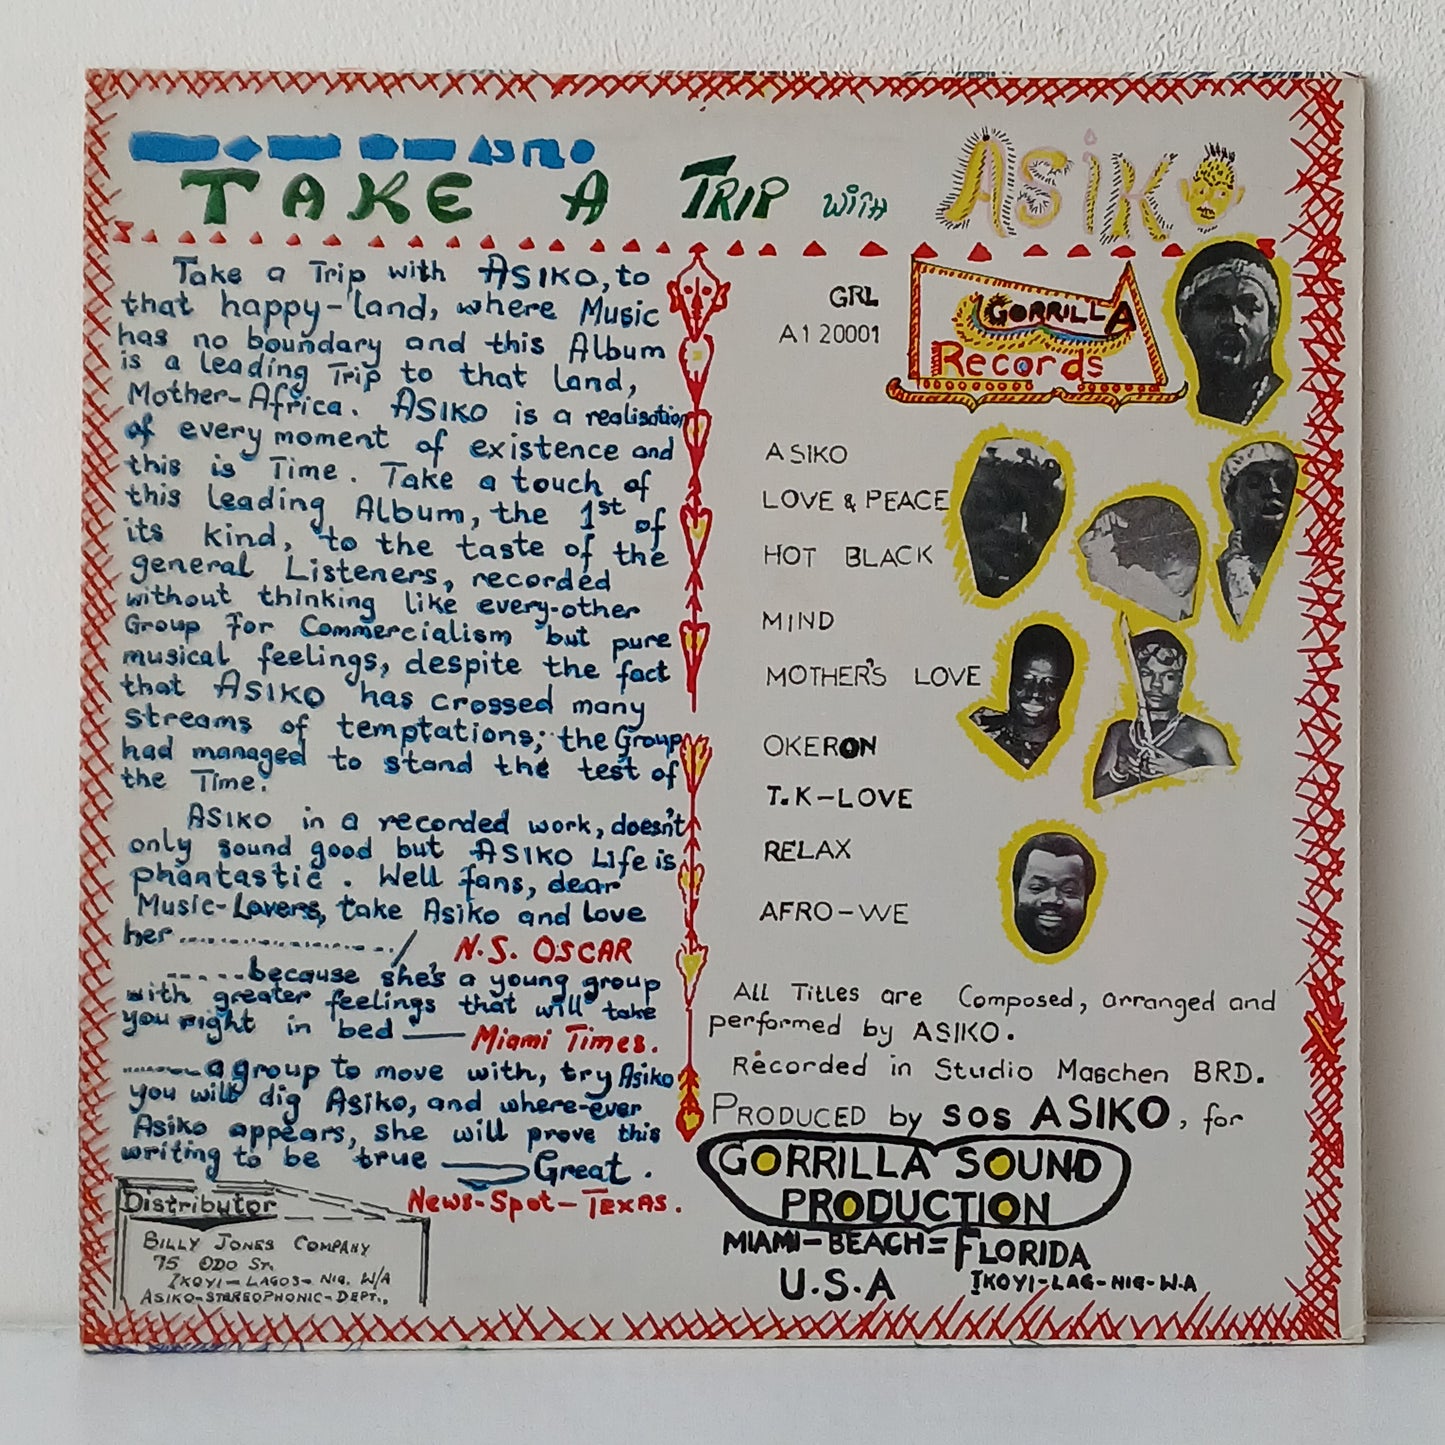 TAKE A TRIP with ASIKO
Take a Trip with ASIKO, to
that happy-land, where Music
has no boundary and this Album
is a leading Trip to that land,
Mother-Africa. ASIKO is a realisation
of every moment of existence and
this is Time. Take a touch of
this leading Album, the 1st of
its kind, to the taste of the
general Listeners, recorded
without thinking like every-other
Group for Commercialism but pure
musical feelings, despite the fact
that ASIKO has crossed many
streams of temptations; the Group
had managed to stand the test of
the Time.
ASIKO in a recorded work, doesn't
only sound good but ASIKO Life is
phantastic. Well fans, dear
Music-Lovers, take Asiko and love
her....................../ N.S. OSCAR
.....because she's a young group
with greater feelings that will take
you right in bed — Miami Times.
........a group to move with, try Asiko
you will dig Asiko, and where-ever
Asiko appears, she will prove this
writing to be true — Great.
News-Spot-TEXAS.
Distributor
BILLY JONES COMPANY
75 ODO ST.
IKOYI-LAGOS-NIG. W/A
ASIKO-STEREOPHONIC-DEPT.,
GRL
A1 20001
GORRILLA
Records
ASIKO
LOVE & PEACE
HOT BLACK
MIND
MOTHER'S LOVE
OKERON
T.K-LOVE
RELAX
AFRO-WE
All Titles are Composed, arranged and
performed by ASIKO.
Recorded in Studio Maschen BRD.
PRODUCED by SOS ASIKO, for
GORRILLA SOUND
PRODUCTION
MIAMI-BEACH=FLORIDA
U.S.A IKOYI-LAG-NIG-W.A